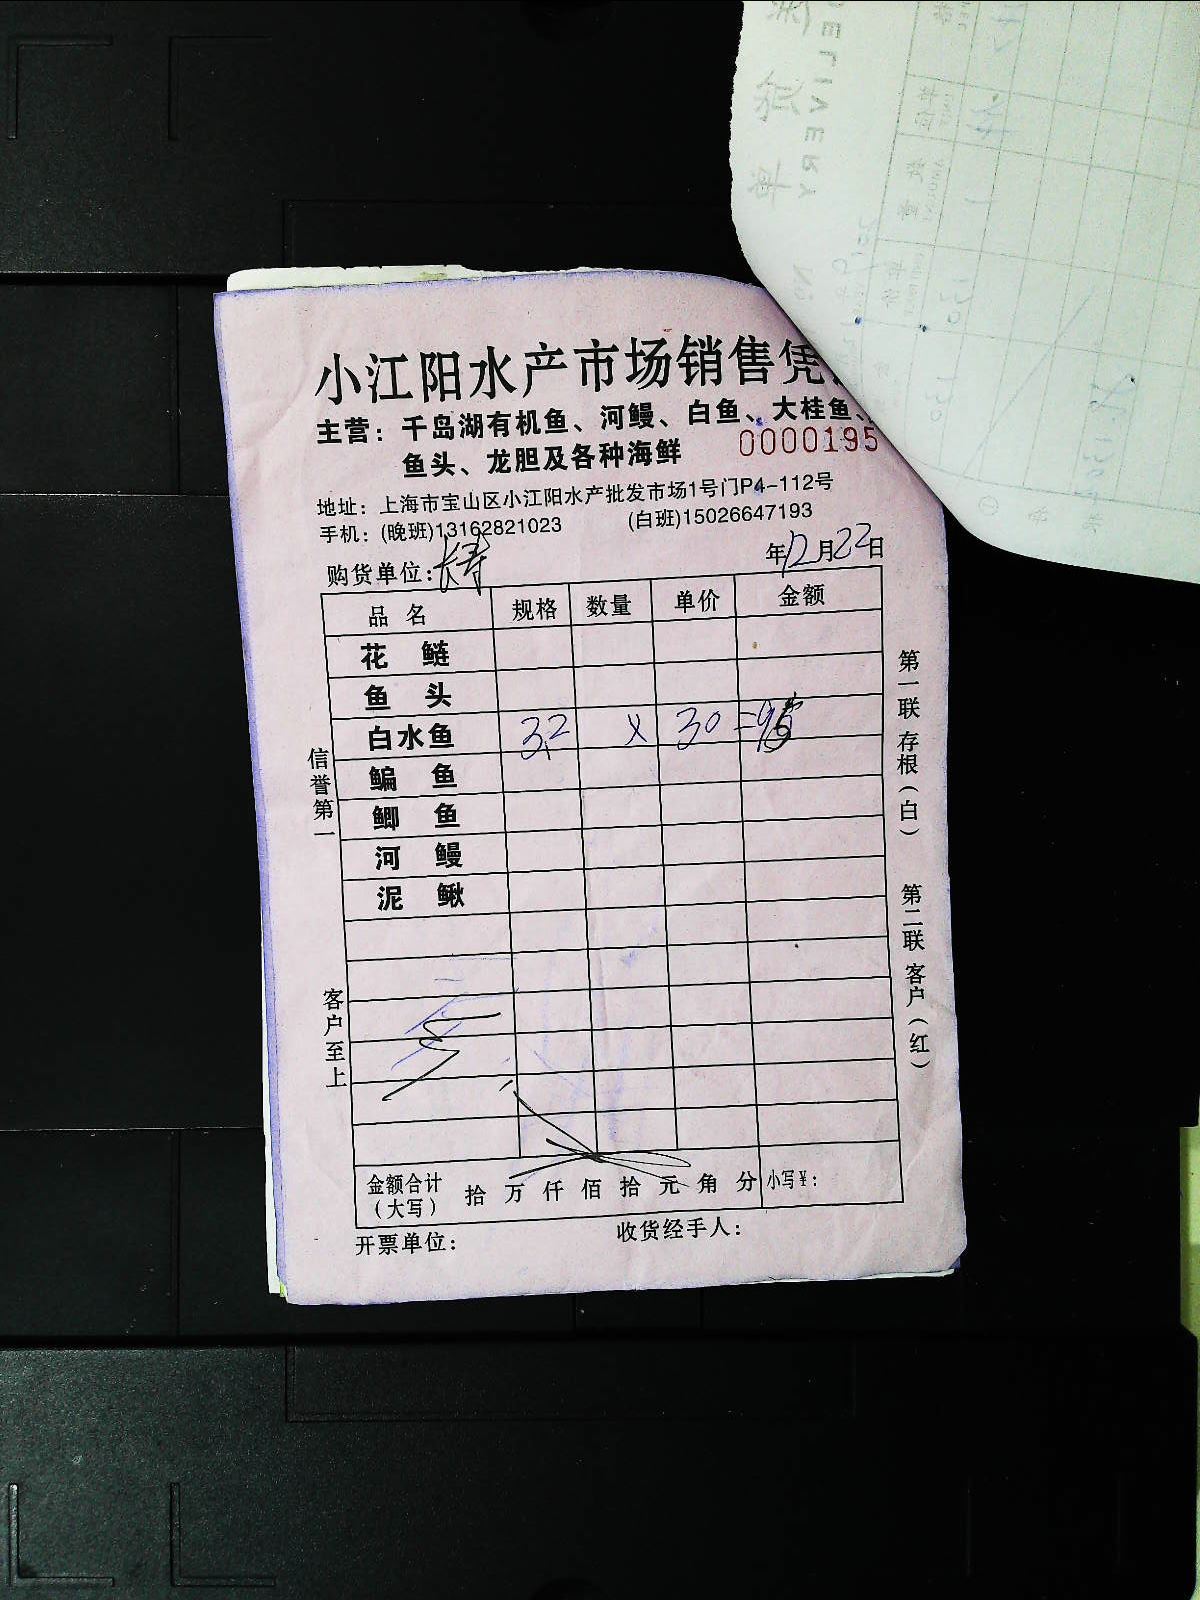 小江阳水产市场销售凭
主营：千岛湖有机鱼、河鳗、白鱼、大桂鱼、
鱼头、龙胆及各种海鲜
0000195
地址：上海市宝山区小江阳水产批发市场1号门P4-112号
手机：(晚班)13162821023 (白班)15026647193
购货单位：长寿 年12月22日
品名 规格 数量 单价 金额
花鲢
鱼头
白水鱼 3.2 × 30 =
鳊鱼
鲫鱼
河鳗
泥鳅
金额合计（大写） 拾万仟佰拾元角分 小写¥：
开票单位： 收货经手人：
信誉第一
客户至上
第一联 存根（白）
第二联 客户（红）
DELIVERY